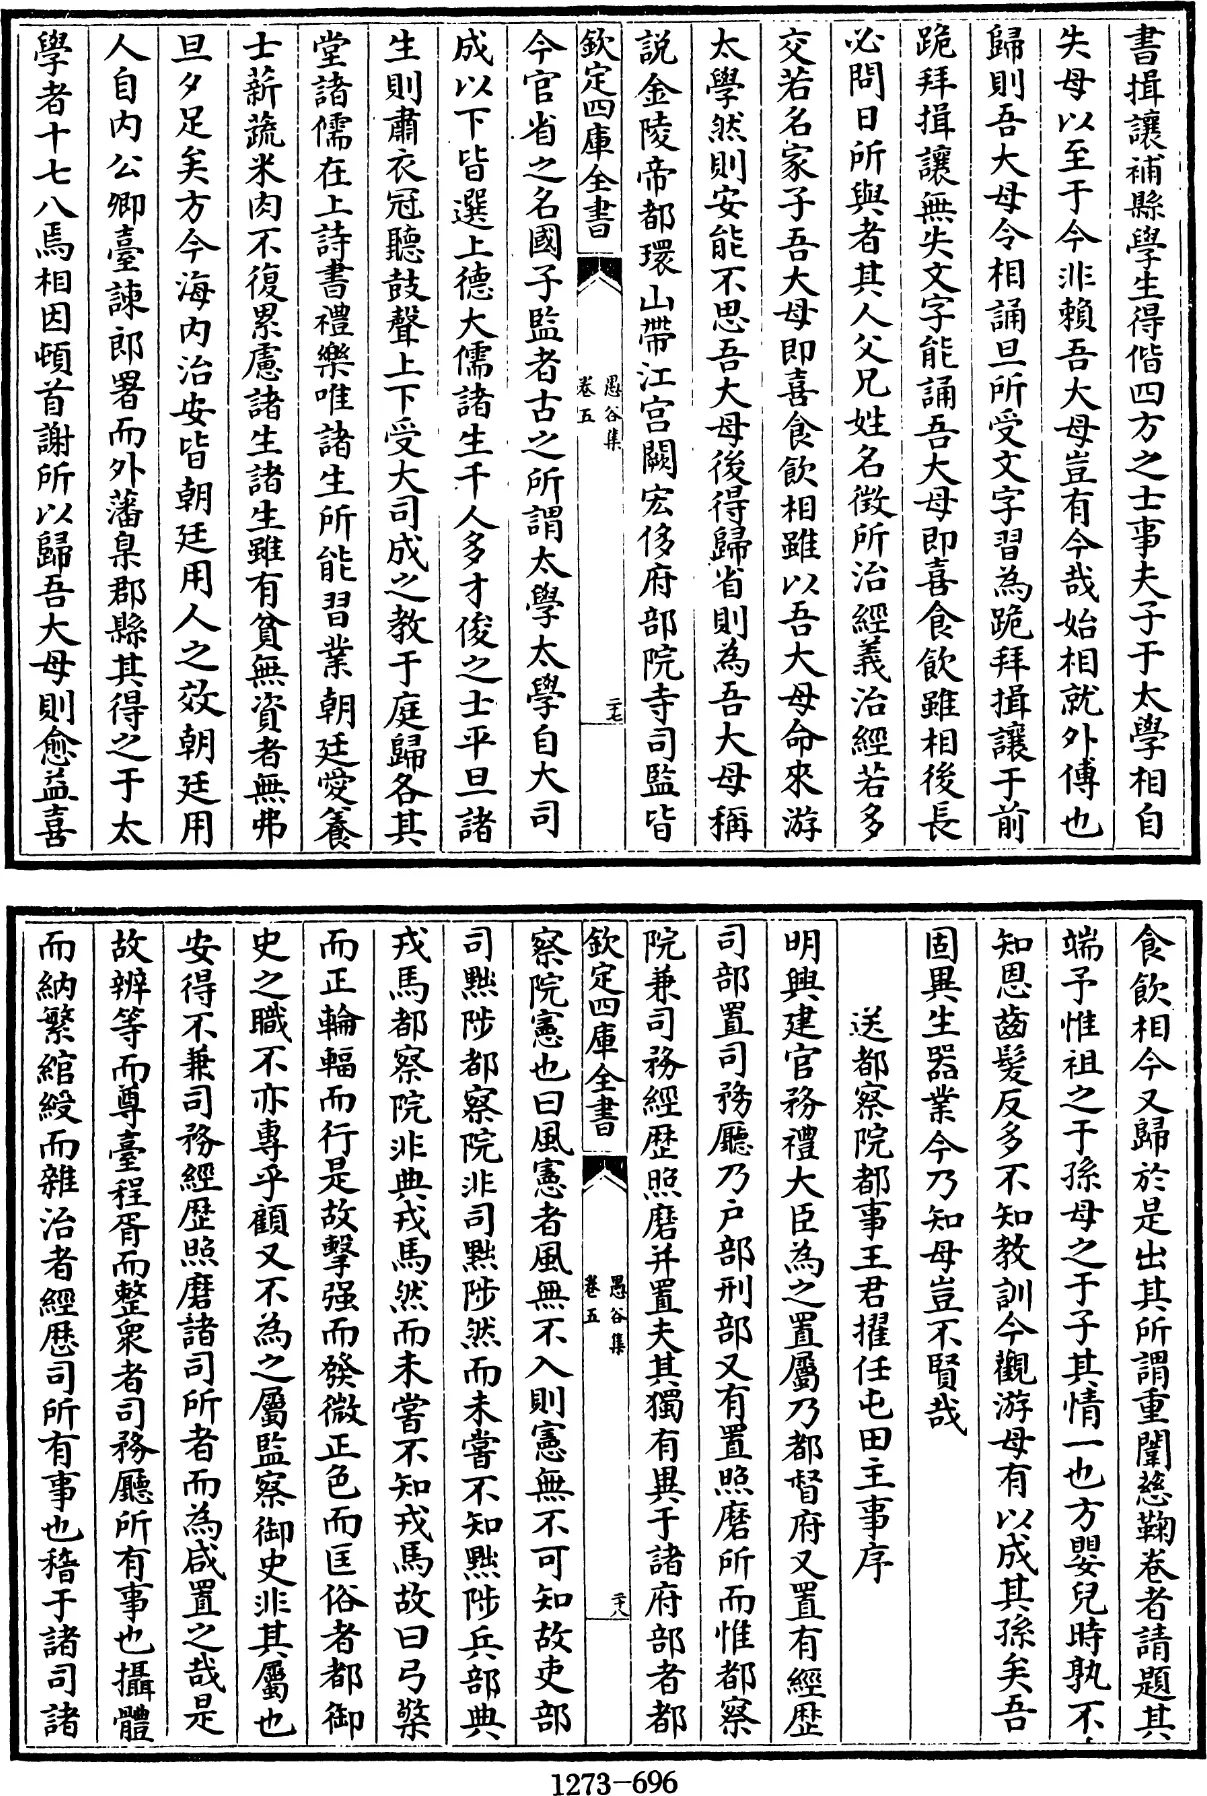 書揖讓補縣學生得偕四方之士事夫子于太學相自
失母以至于今非賴吾大母豈有今哉始相就外傅也
歸則吾大母令相誦旦所受文字習為跪拜揖讓于前
跪拜揖讓無失文字能誦吾大母即喜食飲雖相後長
必問日所與者其人父兄姓名徴所治經義治經若多
交若名家子吾大母即喜食飲相雖以吾大母命來游
太學然則安能不思吾大母後得歸省則為吾大母稱
説金陵帝都環山帶江宫闕宏侈府部院寺司監皆
欽定四庫全書
愚谷集
卷五
二十七
今官省之名國子監者古之所謂太學太學自大司
成以下皆選上德大儒諸生千人多才俊之士平旦諸
生則肅衣冠聽鼓聲上下受大司成之教于庭歸各其
堂諸儒在上詩書禮樂唯諸生所能習業朝廷愛養
士薪蔬米肉不復累慮諸生諸生雖有貧無資者無弗
旦夕足矣方今海内治安皆朝廷用人之效朝廷用
人自内公卿臺諫郎署而外藩臬郡縣其得之于太
學者十七八焉相因頓首謝所以歸吾大母則愈益喜
食飲相今又歸於是出其所謂重闈慈鞠卷者請題其
端予惟祖之于孫母之于子其情一也方嬰兒時孰不
知恩齒髮反多不知教訓今觀游母有以成其孫矣吾
固異生器業今乃知母豈不賢哉
送都察院都事王君擢任屯田主事序
明興建官務禮大臣為之置屬乃都督府又置有經歴
司部置司務廳乃户部刑部又有置照磨所而惟都察
院兼司務經歴照磨并置夫其獨有異于諸府部者都
欽定四庫全書
愚谷集
卷五
二十八
察院憲也曰風憲者風無不入則憲無不可知故吏部
司黜陟都察院非司黜陟然而未嘗不知黜陟兵部典
戎馬都察院非典戎馬然而未嘗不知戎馬故曰弓檠
而正輪輻而行是故擊强而發微正色而匡俗者都御
史之職不亦專乎顧又不為之屬監察御史非其屬也
安得不兼司務經歴照磨諸司所者而為咸置之哉是
故辨等而尊臺程胥而整衆者司務廳所有事也攝體
而納繁綰綬而雜治者經歴司所有事也稽于諸司諸
1273-696